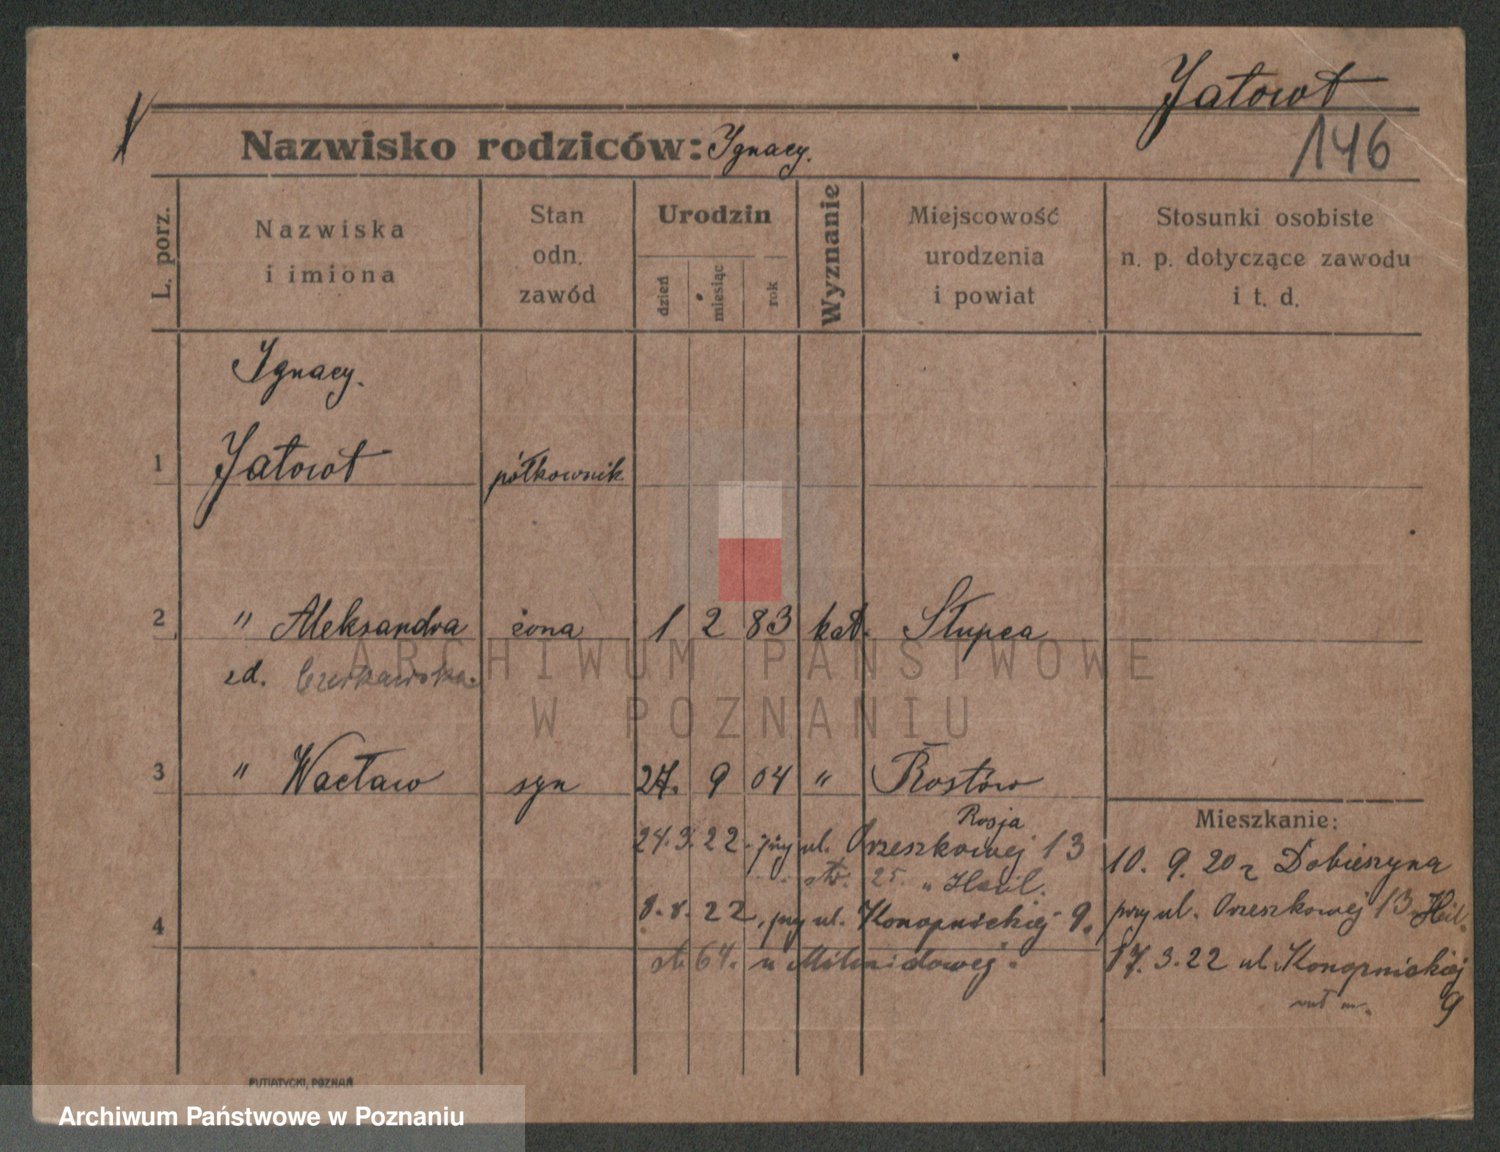 Jatowt
146
Nazwisko rodziców: Ignacy.
L. porz.
Nazwiska
i imiona
Stan
odn.
zawód
Urodzin
dzień
miesiąc
rok
Wyznanie
Miejscowość
urodzenia
i powiat
Stosunki osobiste
n. p. dotyczące zawodu
i t. d.
Ignacy.
1 Jatowt półkownik
2 " Aleksandra żona 1 2 83 kat. Słupca
zd. Czerkawska
3 " Wacław syn 27. 9 04 " Rostów
Rosja
24. 3. 22. przy ul. Orzeszkowej 13
25. "
8. 8. 22, przy ul. Konopnickiej 9.
64.
4
Mieszkanie:
10. 9. 20 z Dobieszyna
przy ul. Orzeszkowej 13
17. 3. 22 ul. Konopnickiej
9
ARCHIWUM PAŃSTWOWE
W POZNANIU
PUTIATYCKI, POZNAŃ
Archiwum Państwowe w Poznaniu